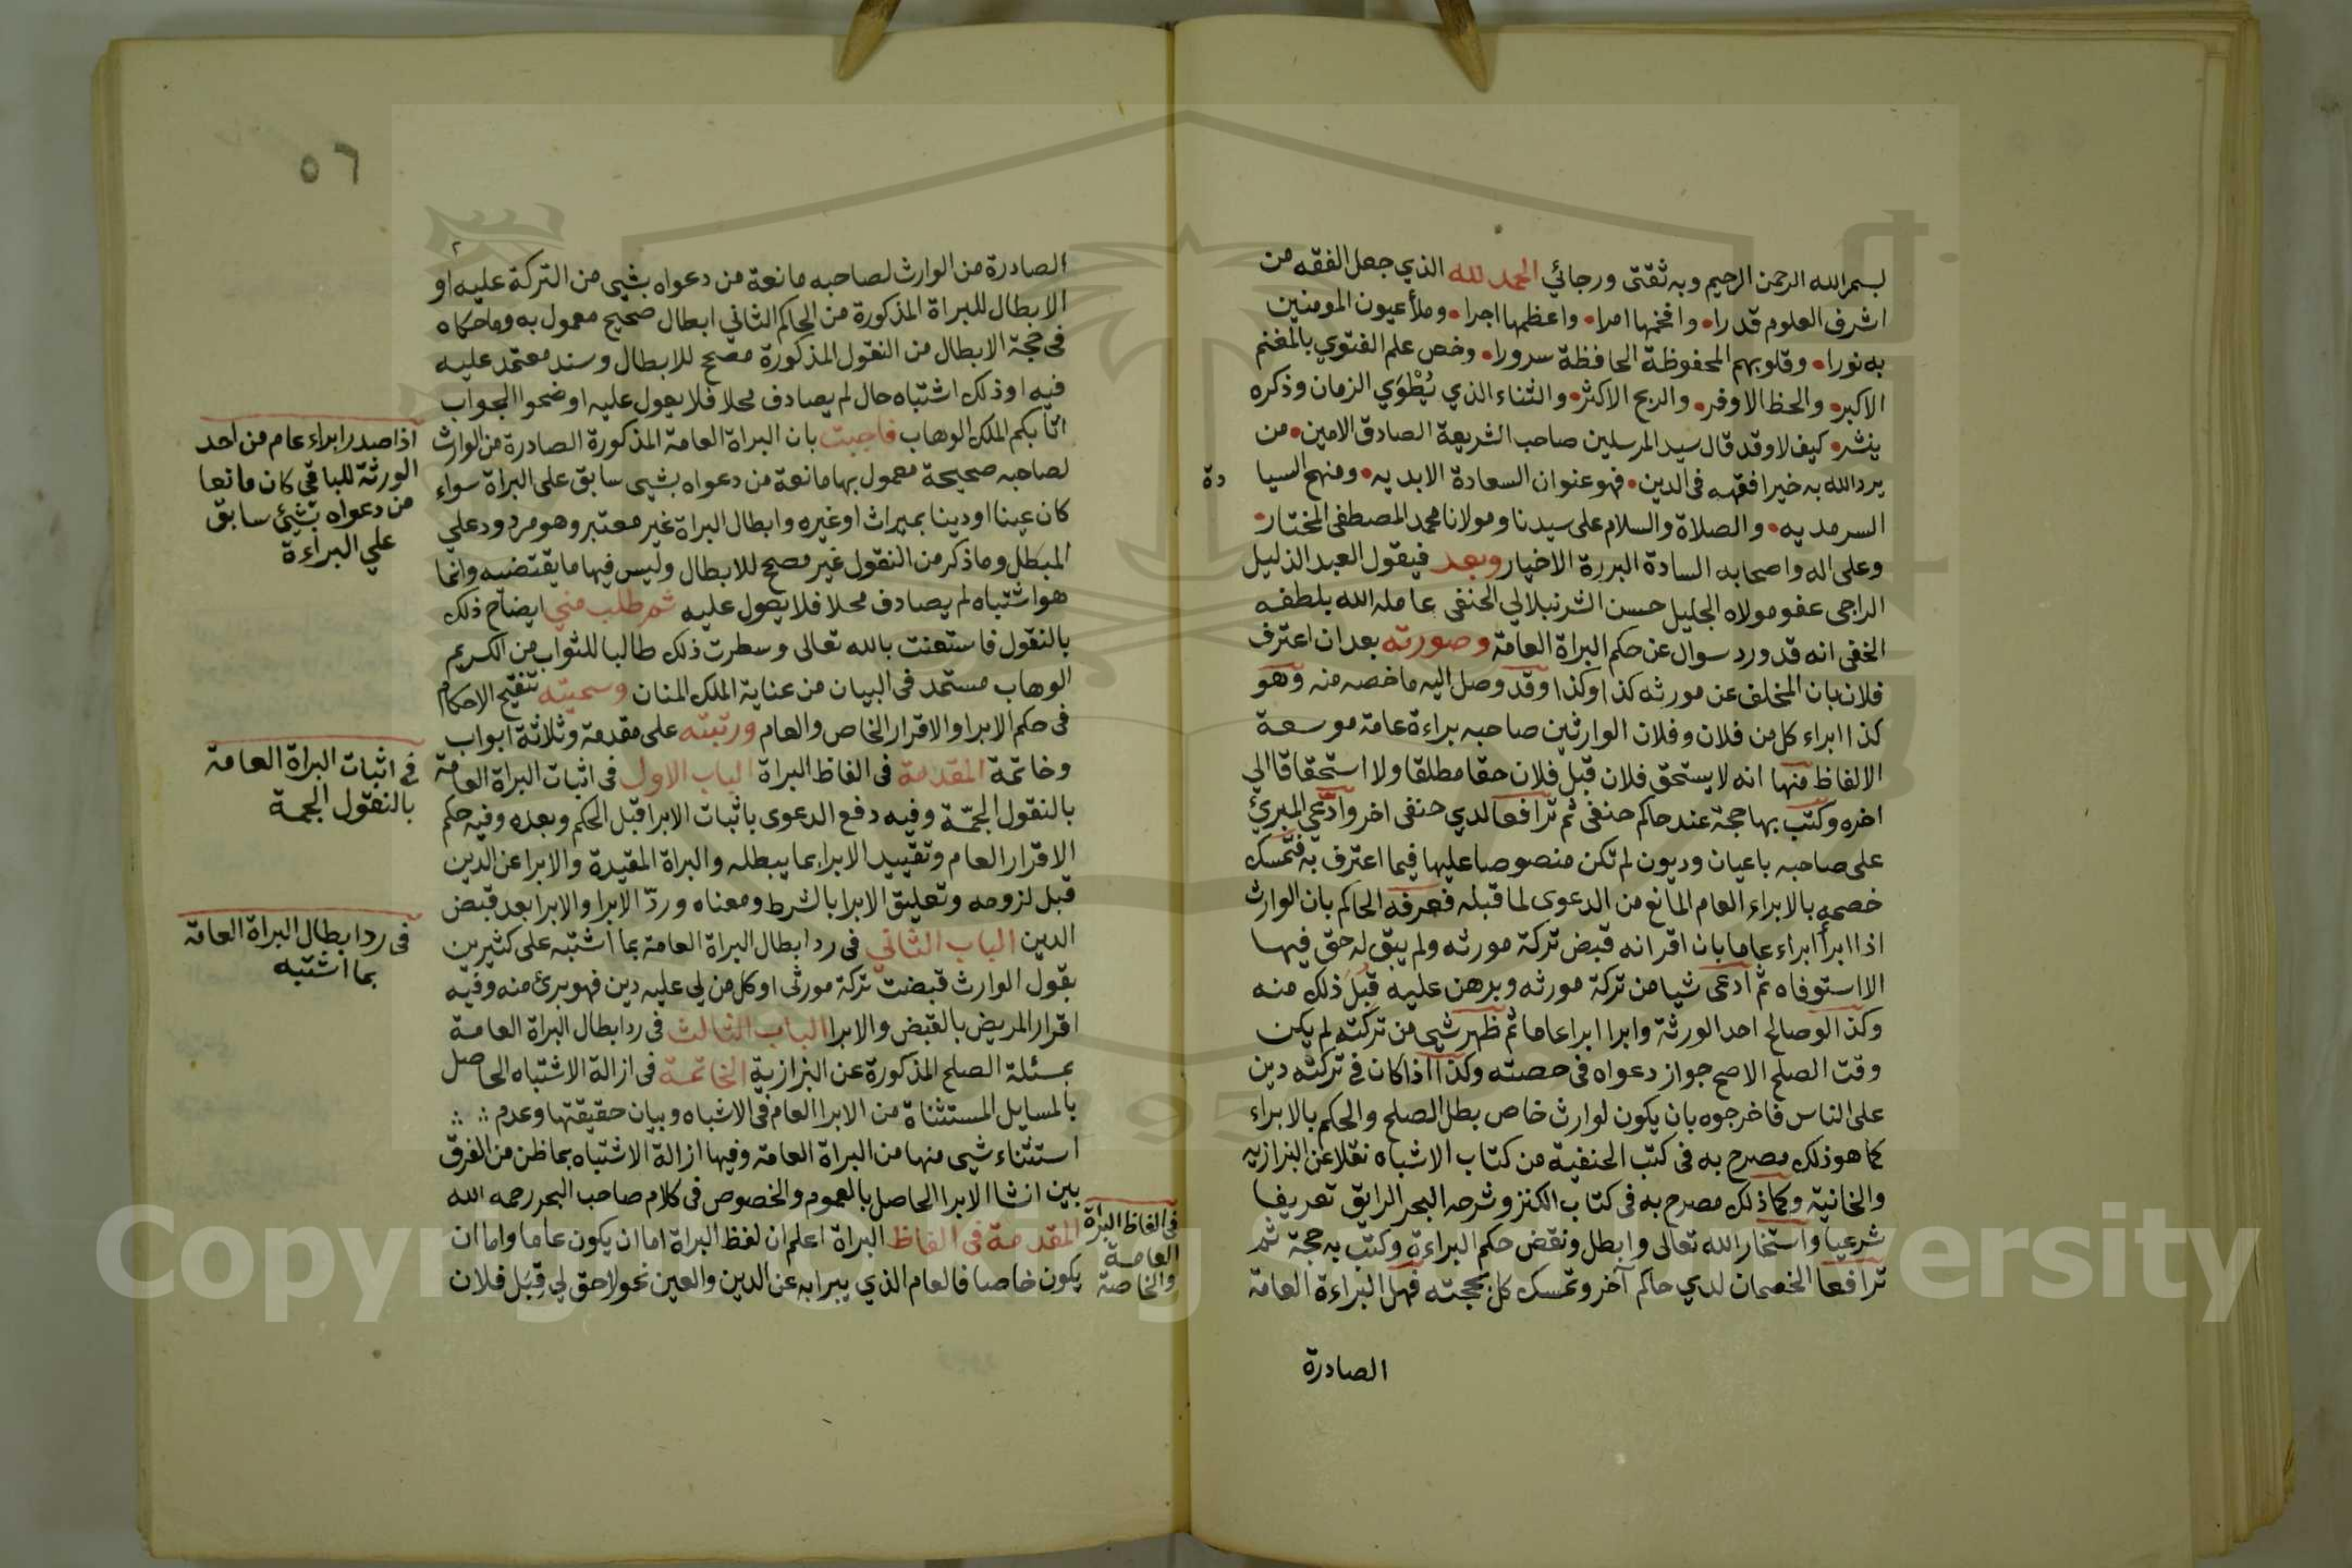 بسم الله الرحمن الرحيم وبه ثقتى ورجائي الحمد لله الذي جعل الفقه من
اشرف العلوم قدرا • وافخمها امرا • واعظمها اجرا • وملأ عيون المومنين
به نورا • وقلوبهم المحفوظة الحافظة سرورا • وخص علم الفتوي بالمغنم
الاكبر • والحظ الاوفر • والربح الاكثر • والثناء الذي يُطْوَي الزمان وذكره
ينشر • كيف لا وقد قال سيد المرسلين صاحب الشريعة الصادق الامين • من
يرد الله به خيرا افقهه فى الدين • فهو عنوان السعادة الابديه • ومنهج السيادة
السرمديه • والصلاة والسلام على سيدنا ومولانا محمد المصطفى المختار •
وعلى اله واصحابه السادة البررة الاخيار وبعد فيقول العبد الذليل
الراجى عفو مولاه الجليل حسن الشرنبلالي الحنفى عامله الله بلطفه
الخفى انه قد ورد سوال عن حكم البراة العامة وصورته بعد ان اعترف
فلان بان المخلف عن مورثه كذا وكذا وقد وصل اليه ما خصه منه وهو
كذا ابراء كل من فلان وفلان الوارثين صاحبه براءة عامة موسعة
الالفاظ منها انه لا يستحق فلان قبل فلان حقا مطلقا ولا استحقاقا الي
اخره وكتب بها حجة عند حاكم حنفى ثم ترافعا لدي حنفى اخر وادعي المبرئ
على صاحبه باعيان وديون لم تكن منصوصا عليها فيما اعترف به فتمسك
خصمه بالابراء العام المانع من الدعوى لما قبله فعرفه الحاكم بان الوارث
اذا ابرأ ابراء عاما بان اقر انه قبض تركة مورثه ولم يبق له حق فيها
الا استوفاه ثم ادعى شيا من تركة مورثه وبرهن عليه قبل ذلك منه
وكذا لو صالح احد الورثة وابرا ابرا عاما ثم ظهر شي من تركته لم يكن
وقت الصلح الاصح جواز دعواه فى حصته وكذا اذا كان في تركته دين
على الناس فاخرجوه بان يكون لوارث خاص بطل الصلح والحكم بالابراء
كما هو ذلك مصرح به فى كتب الحنفية من كتاب الاشباه نقلا عن البزازيه
والخانية وكما ذلك مصرح به فى كتاب الكنز وشرحه البحر الرايق تعريفا
شرعيا واستخار الله تعالى وابطل ونقض حكم البراءة وكتب به حجة ثم
ترافعا الخصمان لدي حاكم آخر وتمسك كل بحجته فهل البراءة العامة
الصادرة
٥٦
الصادرة من الوارث لصاحبه مانعة من دعواه بشي من التركة عليه او
الابطال للبراة المذكورة من الحاكم الثاني ابطال صحيح معمول به وما حكاه
فى حجة الابطال من النقول المذكورة مصحح للابطال وسند معتمد عليه
فيه او ذلك اشتباه حال لم يصادف محلا فلا يعول عليه اوضحوا الجواب
اثابكم الملك الوهاب فاجبت بان البراة العامة المذكورة الصادرة من الوارث
لصاحبه صحيحة معمول بها مانعة من دعواه بشي سابق على البراة سواء
كان عينا او دينا بميراث او غيره وابطال البراة غير معتبر وهو مردود علي
المبطل وما ذكر من النقول غير مصحح للابطال وليس فيها ما يقتضيه وانما
هو اشتباه لم يصادف محلا فلا يعول عليه ثم طلب مني ايضاح ذلك
بالنقول فاستعنت بالله تعالى وسطرت ذلك طالبا للثواب من الكريم
الوهاب مستمد فى البيان من عناية الملك المنان وسميته تنقيح الاحكام
فى حكم الابرا والاقرار الخاص والعام ورتبته على مقدمة وثلاثة ابواب
وخاتمة المقدمة فى الفاظ البراة الباب الاول فى اثبات البراة العامة
بالنقول الجمّة وفيه دفع الدعوى باثبات الابرا قبل الحكم وبعده وفيه حكم
الاقرار العام وتقييد الابرا بما يبطله والبراة المقيدة والابرا عن الدين
قبل لزومه وتعليق الابرا بالشرط ومعناه وردّ الابرا والابرا بعد قبض
الدين الباب الثاني فى رد ابطال البراة العامة بما اشتبه على كثيرين
بقول الوارث قبضت تركة مورثى او كل من لي عليه دين فهو برئ منه وفيه
اقرار المريض بالقبض والابرا الباب الثالث فى رد ابطال البراة العامة
بمسئلة الصلح المذكورة عن البزازية الخاتمة فى ازالة الاشتباه الحاصل
بالمسايل المستثناة من الابرا العام فى الاشباه وبيان حقيقتها وعدم
استثناء شي منها من البراة العامة وفيها ازالة الاشتباه بما ظن من الفرق
بين انشا الابرا الحاصل بالعموم والخصوص فى كلام صاحب البحر رحمه الله
المقدمة فى الفاظ البراة اعلم ان لفظ البراة اما ان يكون عاما واما ان
يكون خاصا فالعام الذي يبرا به عن الدين والعين نحو لا حق لي قِبَل فلان
اذا صدر ابراء عام من احد
الورثة للباقي كان مانعا
من دعواه بشئ سابق
علي البراءة
في اثبات البراة العامة
بالنقول الجمة
فى رد ابطال البراة العامة
بما اشتبه
فى الفاظ البرآة
العامة
والخاصة
Copyright © King Saud University